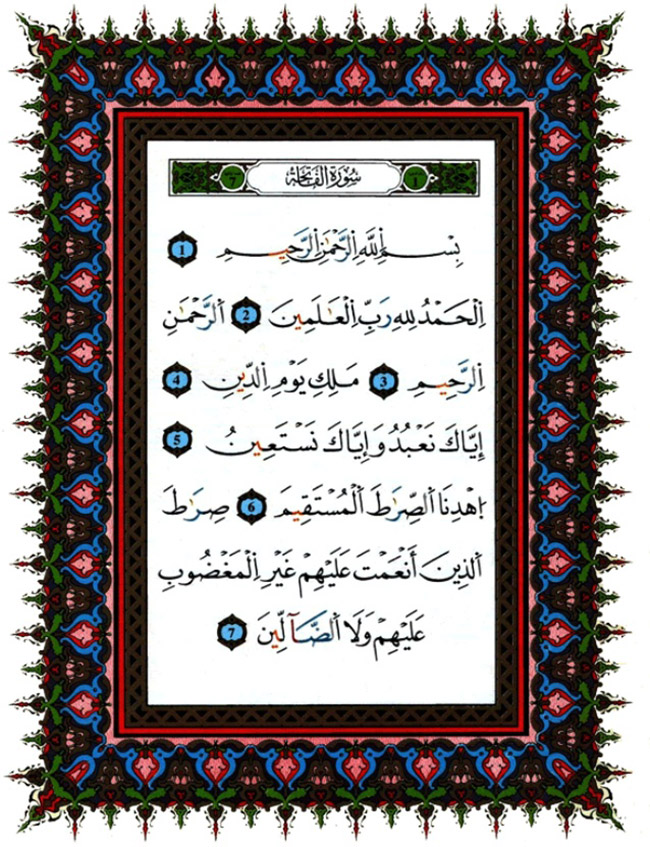 1 سُورَةُ الفَاتِحَة 7
بِسْمِ اِللَّهِ اِلرَّحْمَٰنِ اِلرَّحِيمِ 1
اِلْحَمْدُ لِلهِ رَبِّ اِلْعَٰلَمِينَ 2 اَلرَّحْمَٰنِ
اِلرَّحِيمِ 3 مَلِكِ يَوْمِ اِلدِّينِ 4
إِيَّاكَ نَعْبُدُ وَإِيَّاكَ نَسْتَعِينُ 5
اِهْدِنَا اَلصِّرَٰطَ اَلْمُسْتَقِيمَ 6 صِرَٰطَ
اَلذِينَ أَنْعَمْتَ عَلَيْهِمْ غَيْرِ اِلْمَغْضُوبِ
عَلَيْهِمْ وَلَا اَلضَّآلِّينَ 7